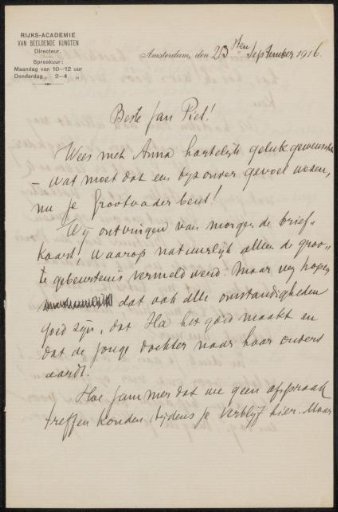 RIJKS-ACADEMIE
VAN BEELDENDE KUNSTEN
Directeur.
Spreekuur:
Maandag van 10–12 uur
Donderdag „ 2–4 „
Amsterdam, den 23sten September 1916.
Beste Jan Piet!
Wees met Anna hartelijk gelukgewenscht
– wat moet dat een bijzonder gevoel wezen,
nu je Grootvader bent!
Wij ontvingen van morgen de brief-
kaart, waarop natuurlijk alleen de groo-
te gebeurtenis vermeld werd. Maar wij hopen
dat ook alle omstandigheden
goed zijn, dat Ha het goed maakt en
dat de jonge dochter naar haar ouders
aardt.
Hoe jammer dat we geen afspraak
treffen konden, tijdens je verblijf hier. Maar